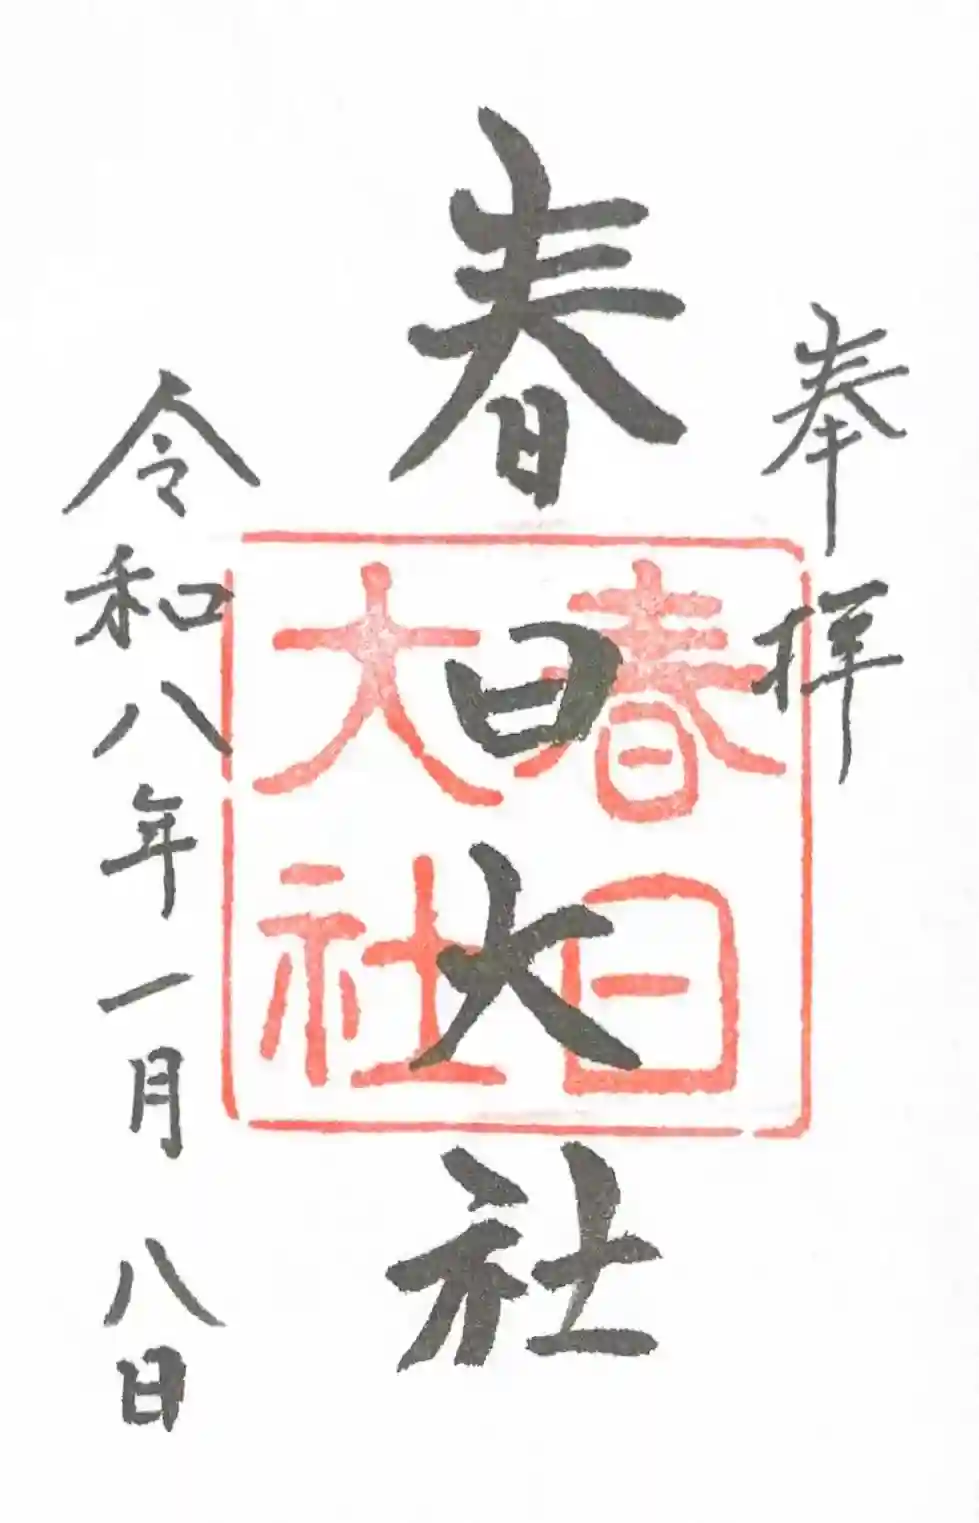 奉拝
春日大社
春日
大社
令和八年一月八日